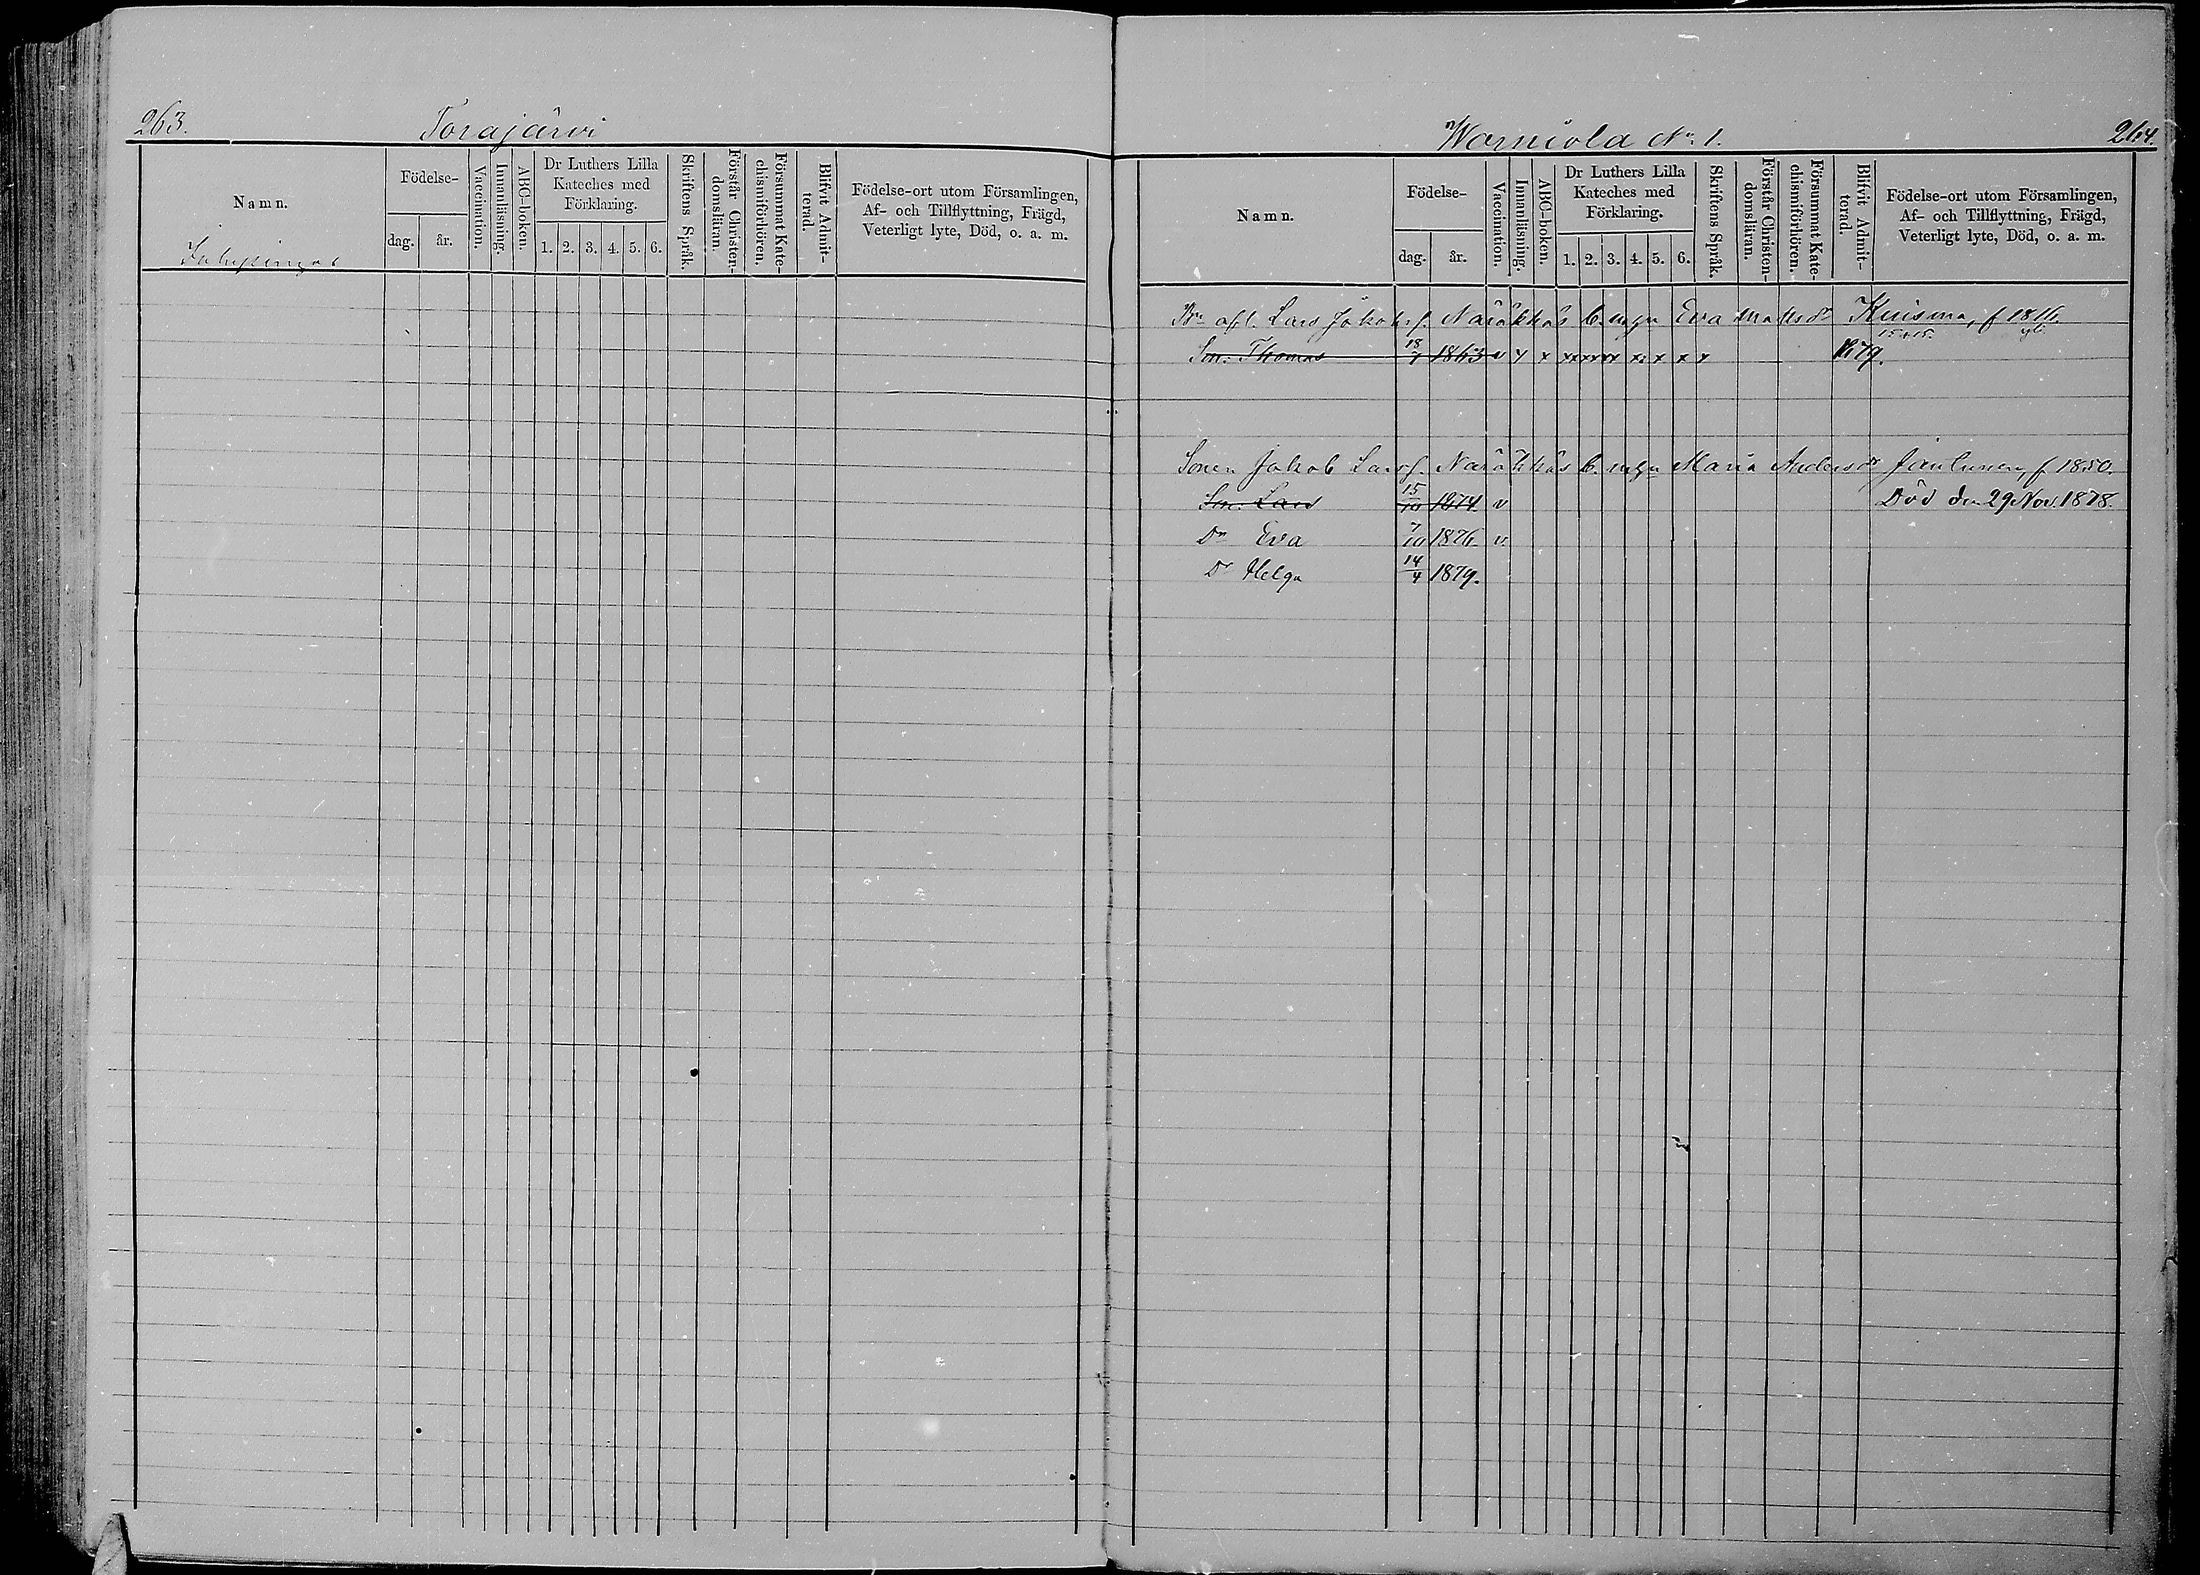 263.
Torajärvi
Namn.
Födelse-
dag.
år.
Vaccination.
Innanläsning.
ABC-boken.
Dr Luthers Lilla
Kateches med
Förklaring.
1. 2. 3. 4. 5. 6.
Skriftens Språk.
Förstår Christen-
domsläran.
Försummat Kate-
chismiförhören.
Blifvit Admit-
terad.
Födelse-ort utom Församlingen,
Af- och Tillflyttning, Frägd,
Veterligt lyte, Död, o. a. m.
Worniola No 1.
264.
Namn.
Födelse-
dag.
år.
Vaccination.
Innanläsning.
ABC-boken.
Dr Luthers Lilla
Kateches med
Förklaring.
1. 2. 3. 4. 5. 6.
Skriftens Språk.
Förstår Christen-
domsläran.
Försummat Kate-
chismiförhören.
Blifvit Admit-
terad.
Födelse-ort utom Församlingen,
Af- och Tillflyttning, Frägd,
Veterligt lyte, Död, o. a. m.
Lars Jakobsf. Eva Matsdr Kuisma, f 1816
Sm. Thomas 18/7 1863 v x x x x x x x x x 1879.
Sonen Jakob Larsf. Maria Andersdr f 1850.
Sm. Lars 15/10 1874 v Död den 29 Nov. 1878.
Dr Eva 7/10 1876 v.
Dr Helga 14/4 1879.